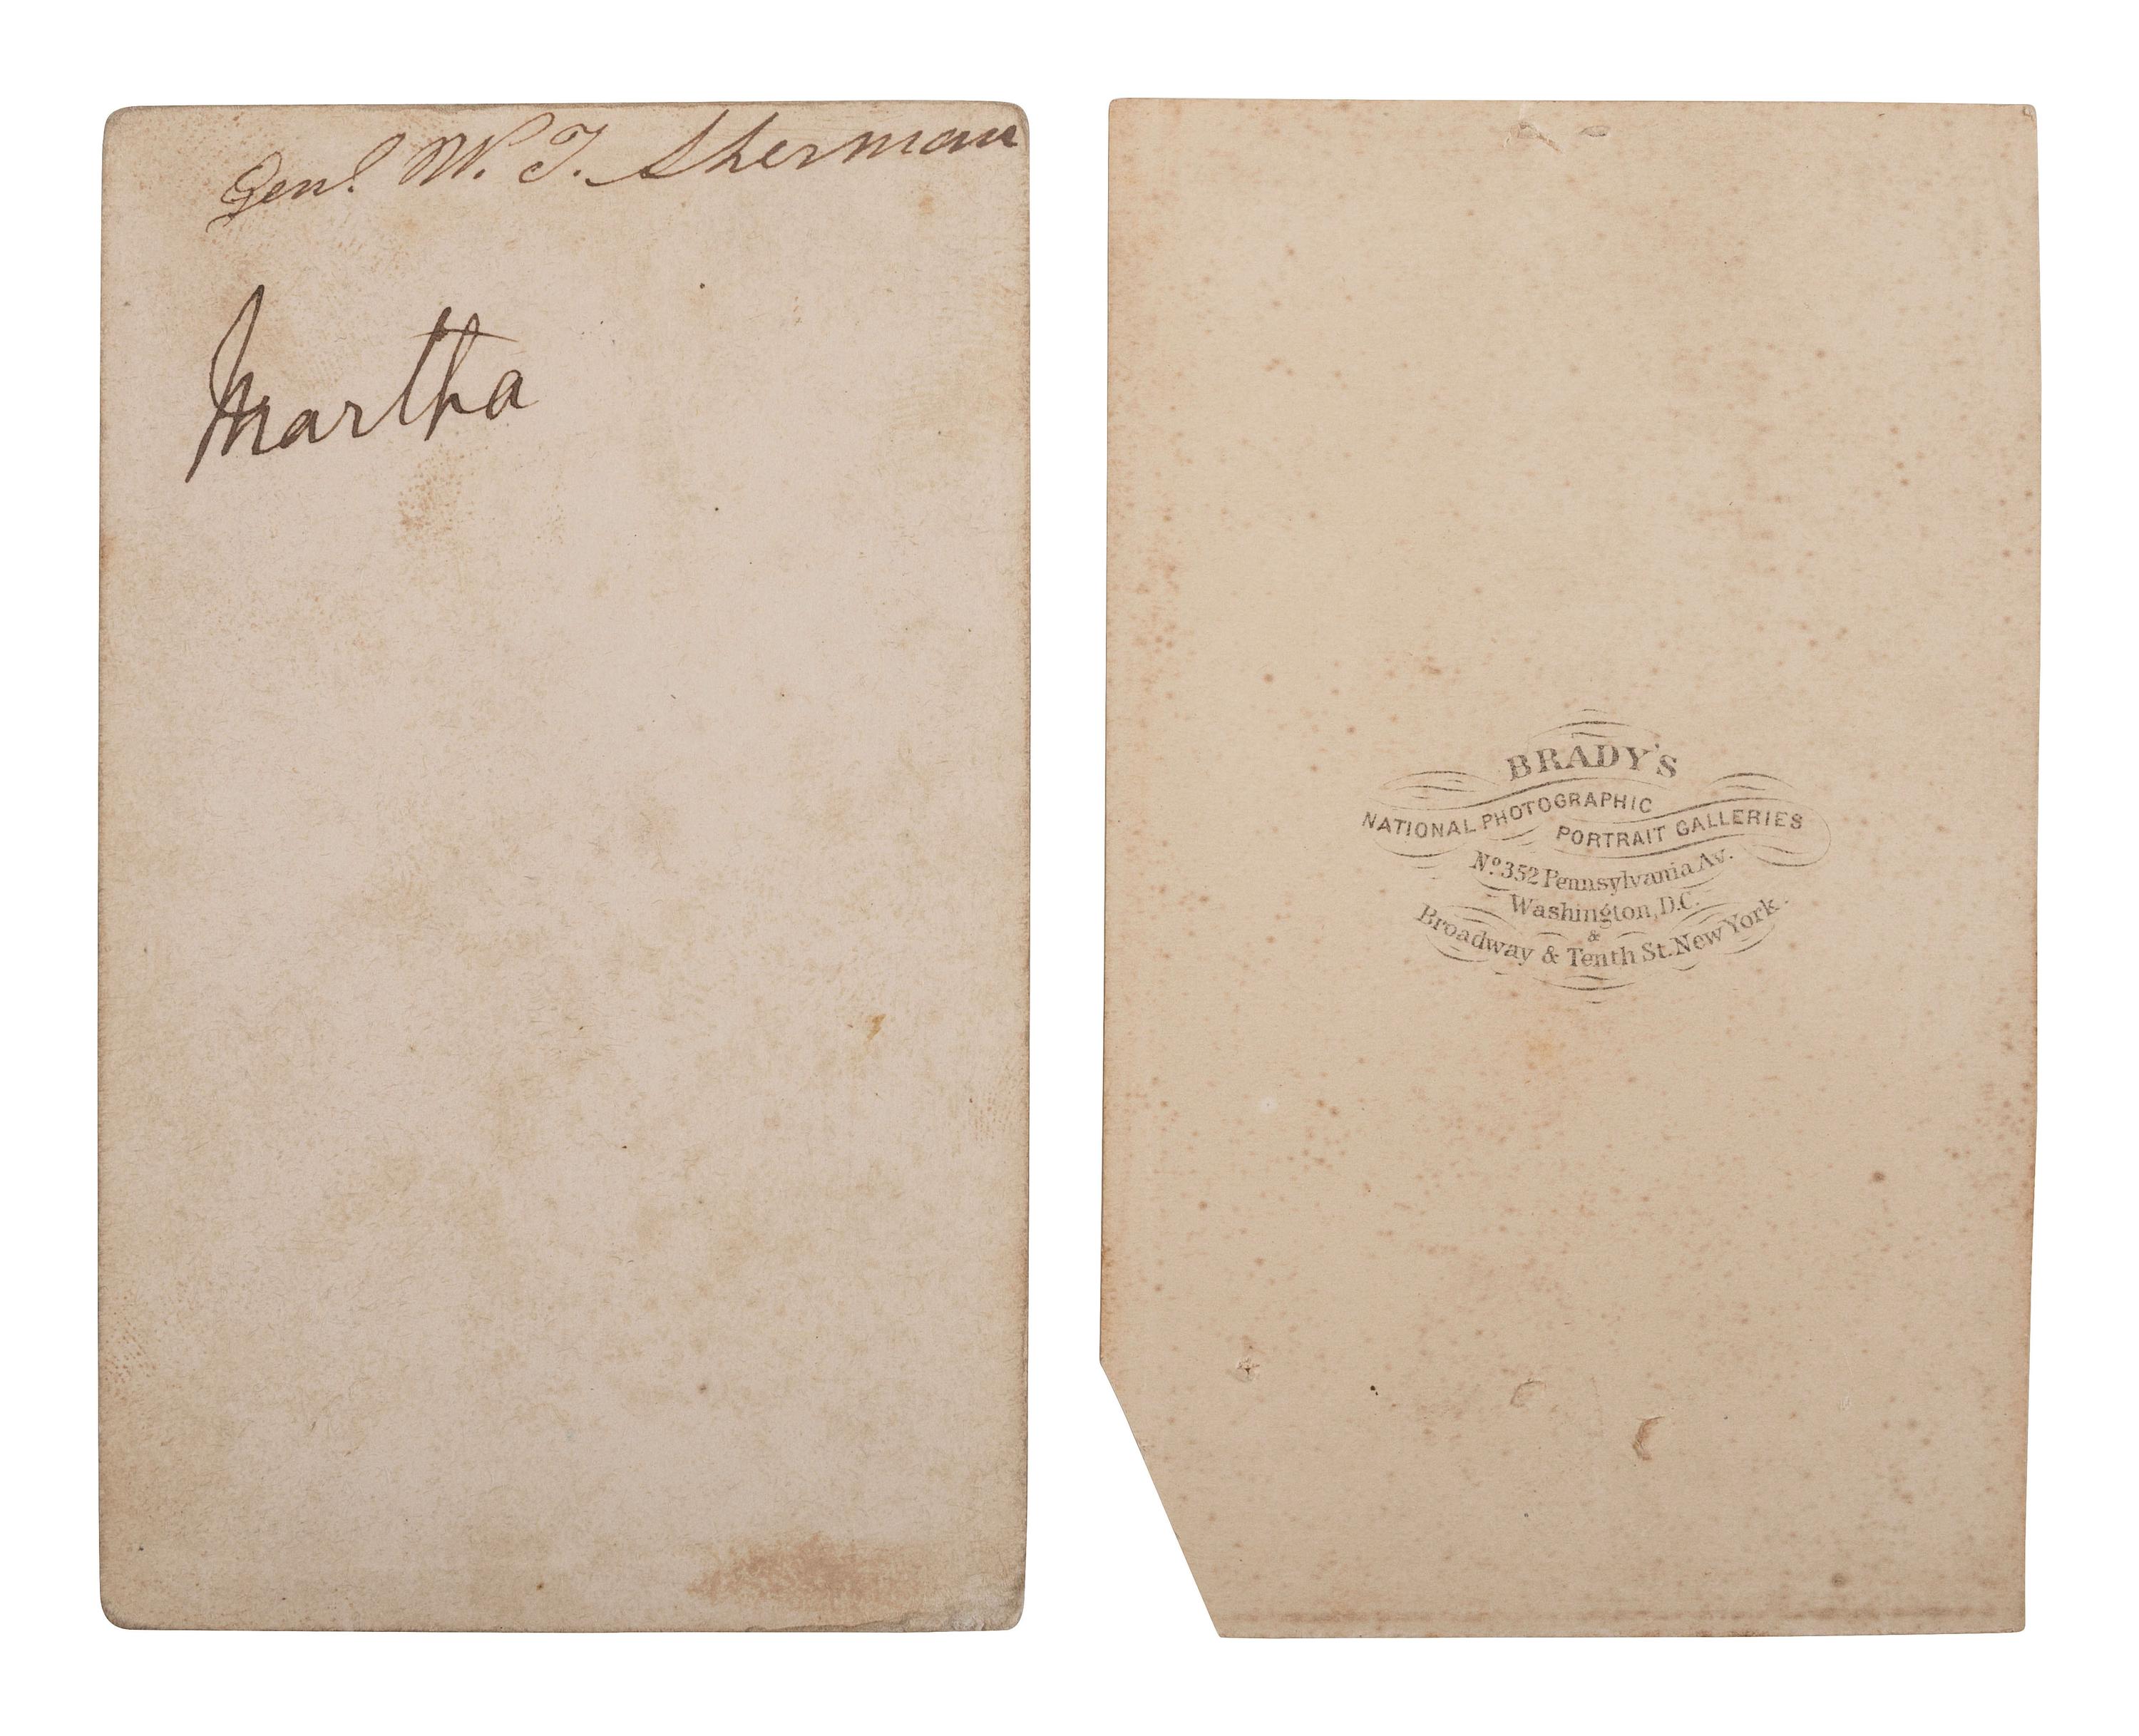 Genl. W. T. Sherman
Martha
BRADY'S
NATIONAL PHOTOGRAPHIC
PORTRAIT GALLERIES
No. 352 Pennsylvania Av.
Washington, D.C.
&
Broadway & Tenth St. New York.